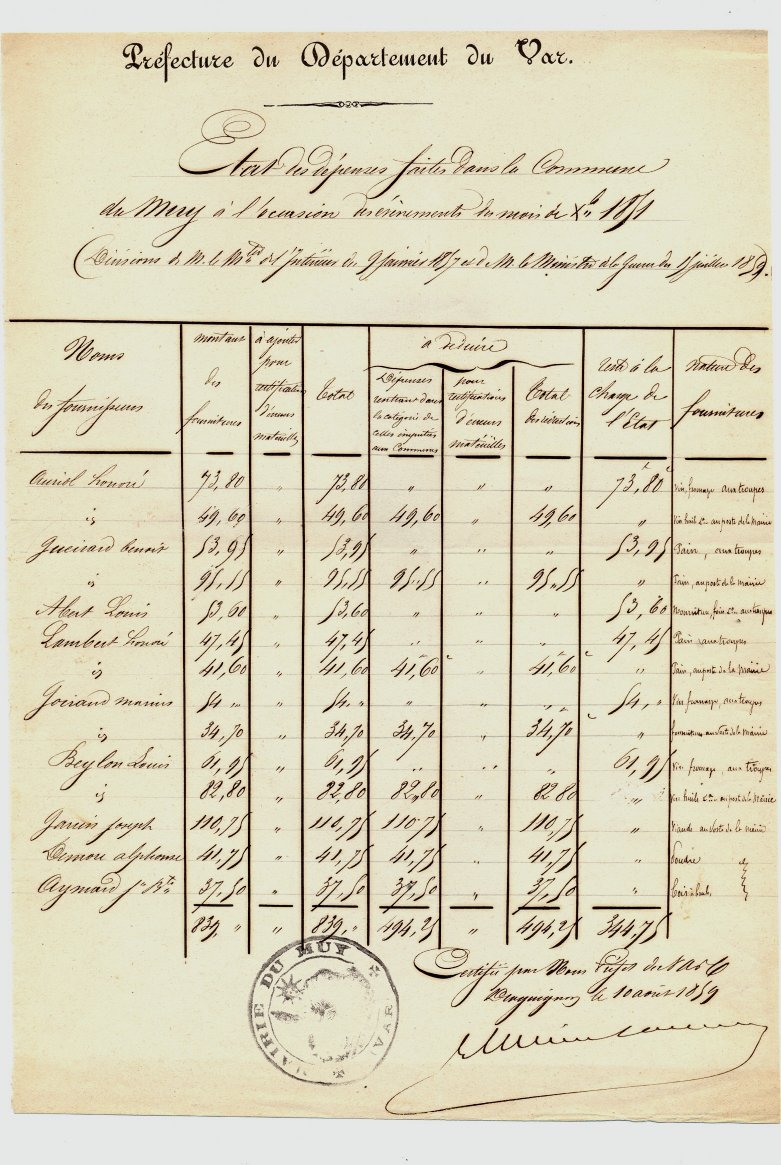 Préfecture du Département du Var.
Etat des dépenses faites dans la Commune
du Muy à l'occasion des évènements du mois de Xbre 1851
(Décisions de M. le Mtre de l'Intérieur du 9 janvier 1857 et de M. le Ministre de la Guerre du 15 juillet 1859.)
Noms des fournisseurs | montant des fournitures | à ajouter pour rectification d'erreurs matérielles | Total | à déduire | reste à la charge de l'Etat | nature des fournitures
Dépenses rentrant dans la catégorie de celles imputées aux Communes | pour rectifications d'erreurs matérielles | Total des réductions
Auriol honoré 73,80 " 73,80 " " " 73,80 Vin, fromage aux troupes
id 49,60 " 49,60 49,60 " 49,60 " Vin huile &a au poste de la Mairie
Gueirard benoit 53,95 " 53,95 " " " 53,95 Pain, aux troupes
" 95,55 " 95,55 95,55 " 95,55 " Pain, au poste de la mairie
Abert Louis 53,60 " 53,60 " " " 53,60 Nourriture, foin &a aux troupes
Lambert honoré 47,45 " 47,45 " " " 47,45 Pain aux troupes
id 41,60 " 41,60 41,60 " 41,60 " Pain, au poste de la Mairie
Goirand marius 54 " " 54 " " " " 54, " Vin fromage, aux troupes
id 34,70 " 34,70 34,70 " 34,70 " fournitures au poste de la Mairie
Beylon Louis 61,95 " 61,95 " " " 61,95 Vin fromage, aux troupes
id 82,80 " 82,80 82,80 " 82 80 " Vin huile &a au poste de la Mairie
Joseph 110,75 " 110,75 110,75 " 110,75 " Viande au poste de la mairie
alphonse 41,75 " 41,75 41,75 " 41,75 " Poudre
Aymard Jn Bte 37,50 " 37,50 37,50 " 37,50 "
839, " " 839, " 494,25 " 494,25 344,75
Certifié par Nous Préfet du Var
Draguignan le 10 août 1859
MAIRIE DU MUY (VAR)